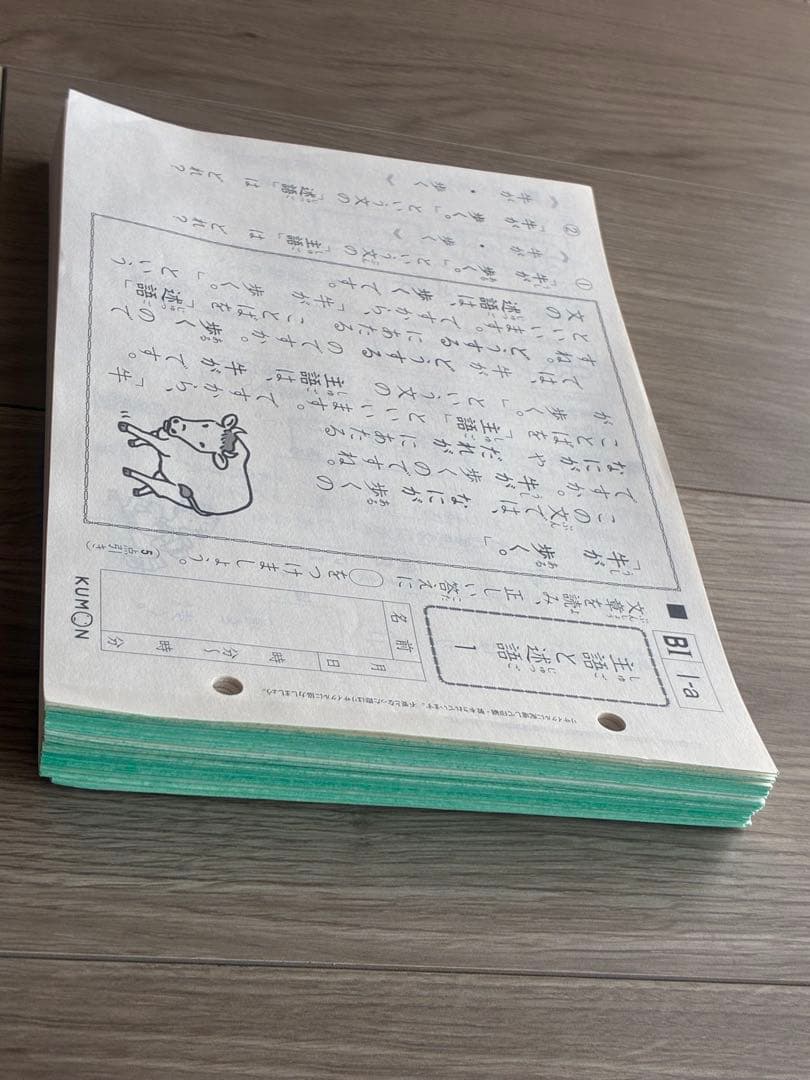 BI 1-a
主語と述語 1
名前
月 日
時 分〜 時 分
KUMON
■ 文章を読み、正しい答えに○をつけましょう。(5点引き)
「牛が歩く。」
この文では、なにが歩くの
ですか。牛が歩くのですね。
なにが や だれが にあたる
ことばを「主語」といいます。ですから、「牛
が歩く。」という文の主語は、牛がです。
では、牛がどうするのですか。歩くので
すね。どうする にあたることばを「述語」
といいます。ですから、「牛が歩く。」という
文の述語は、歩くです。
① 「牛が歩く。」という文の「主語」はどれ?
( 牛が ・ 歩く )
② 「牛が歩く。」という文の「述語」はどれ?
( 牛が ・ 歩く )